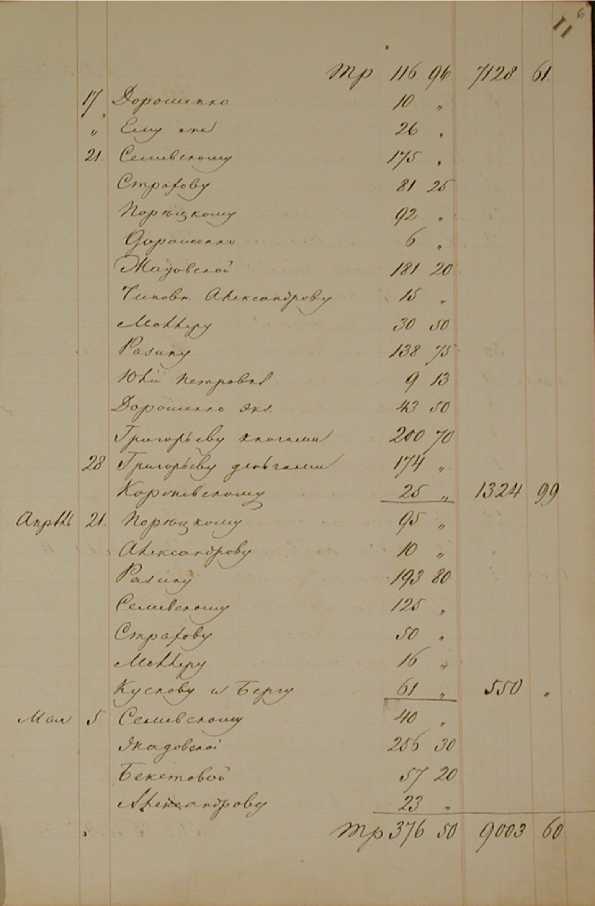 11 6
Тр 116 96 7128 61
17 Дорошенко 10 „
„ Ему же 26 „
21 Семевскому 175 „
Страхову 81 25
Порецкому 92 „
Дорошенко 6 „
Жадовской 181 20
Чиновн. Александрову 15 „
Моллеру 30 50
Разину 138 75
Юлии Петровне 9 13
Дорошенко экз. 43 50
Григорьеву книгами 200 70
28 Григорьеву деньгами 174 „
25 „ 1324 99
Апрель 21 Порецкому 95 „
Александрову 10 „
Разину 193 80
Семевскому 125 „
Страхову 50 „
Моллеру 16 „
Кускову и Бергу 61 „ 550 „
Мая 5 Семевскому 40 „
Жадовской 256 30
Бекетовой 57 20
Александрову 23 „
Тр 376 50 9003 60